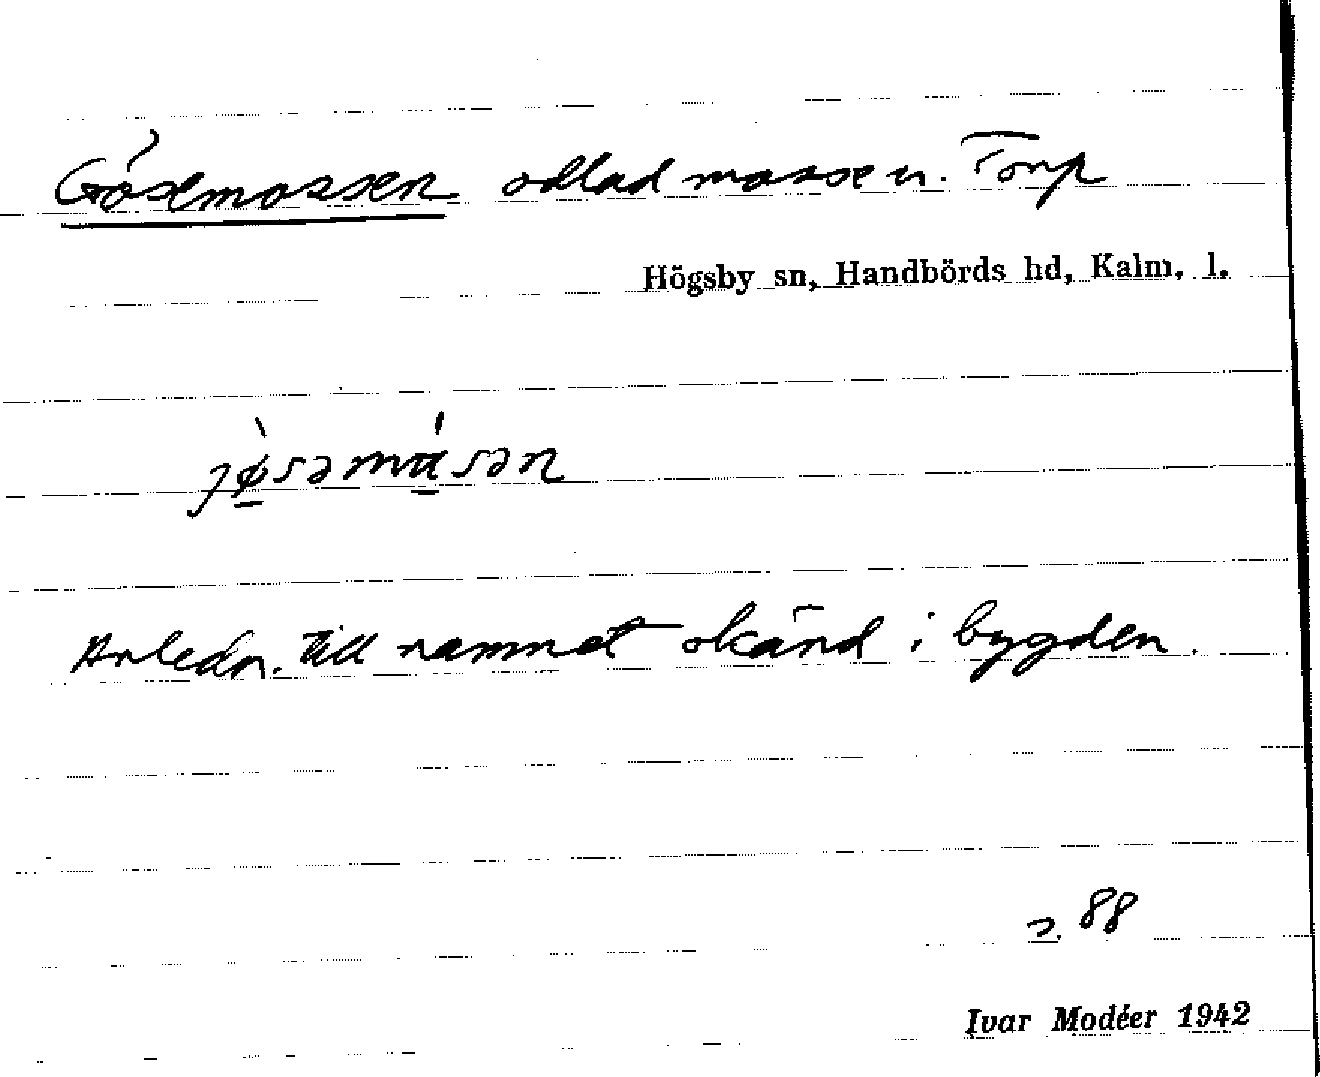 Gösemossen odlad mosse u. Torp
Högsby sn, Handbörds hd, Kalm. l.
jø̀səmásən
Anledn. till namnet okänd i bygden.
s. 88
Ivar Modéer 1942